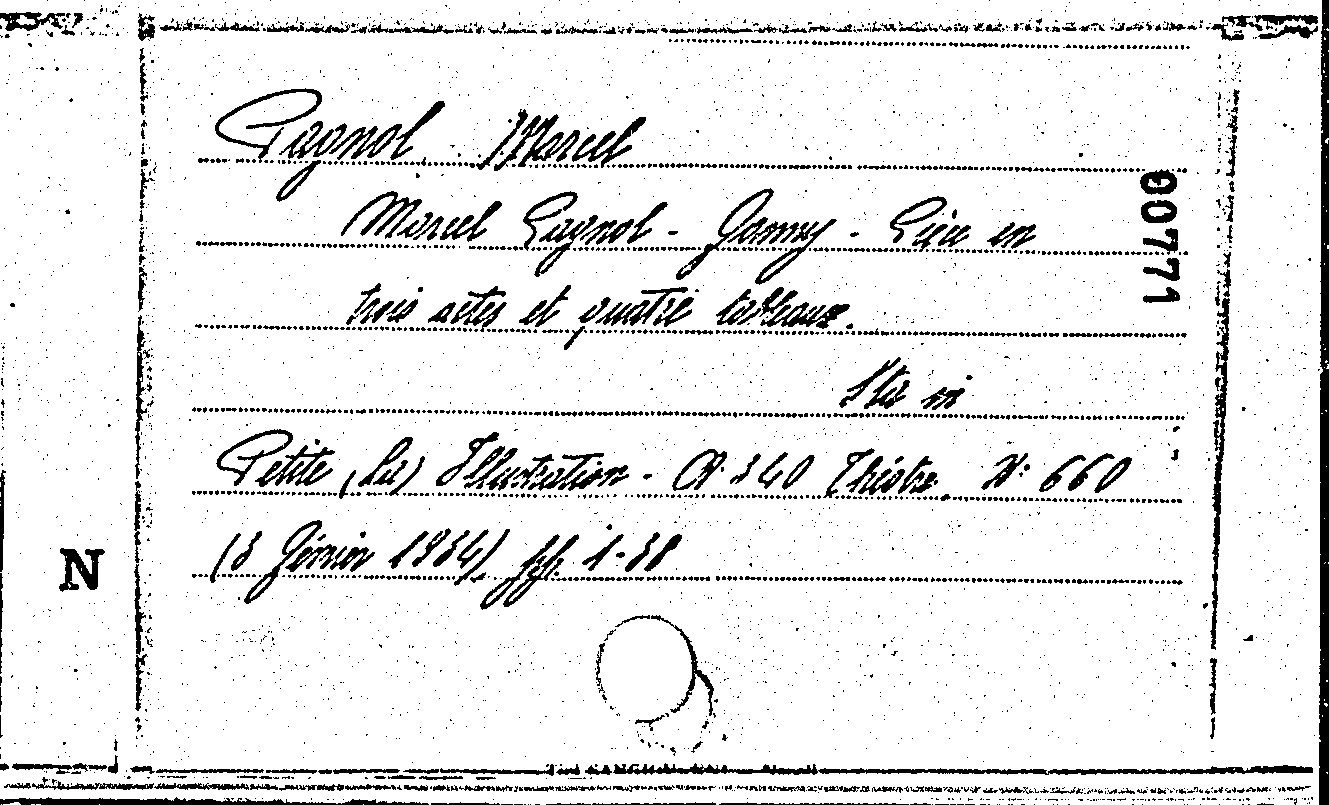 Pagnol, Marcel
Marcel Pagnol - Fanny - Pièce en
trois actes et quatre tableaux.
Sta in
Petite (La) Illustration - N. 340 Théâtre. N: 660
(3 février 1934) pp. 1-38
00771
N